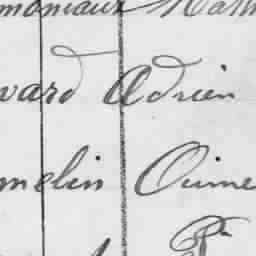 moniaux Math
vard Adrien
melin Ouime